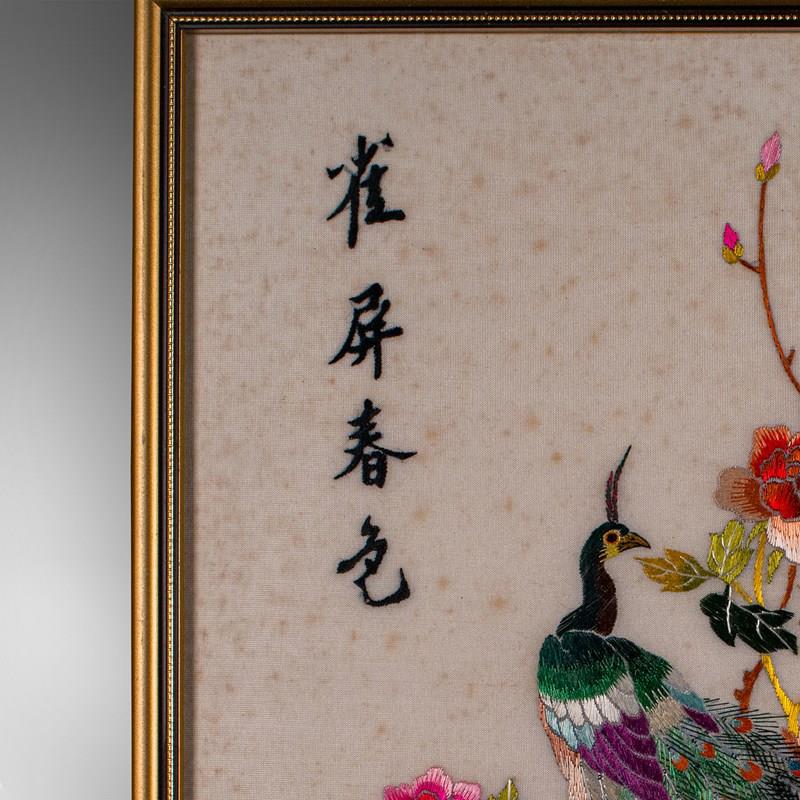 雀屏春色